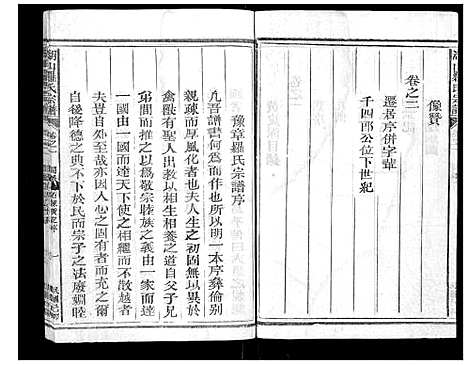 像贊
卷之三
遷居序併字輩
千四郎公位下世紀
豫章羅氏宗譜序
凡吾譜書何爲而作也所以明一本序彝倫别
親疏而作也夫人生之初固無以異於
禽獸有聖人出以相生相養之道自父子兄
弟間而推之以爲敬宗睦族之義由一家而達
一國由一國而達天下使之相繼而不散越者
夫豈自他哉亦因人心之固有者而充之爾
自後降德之典不下於民而宗子之法廢婣睦